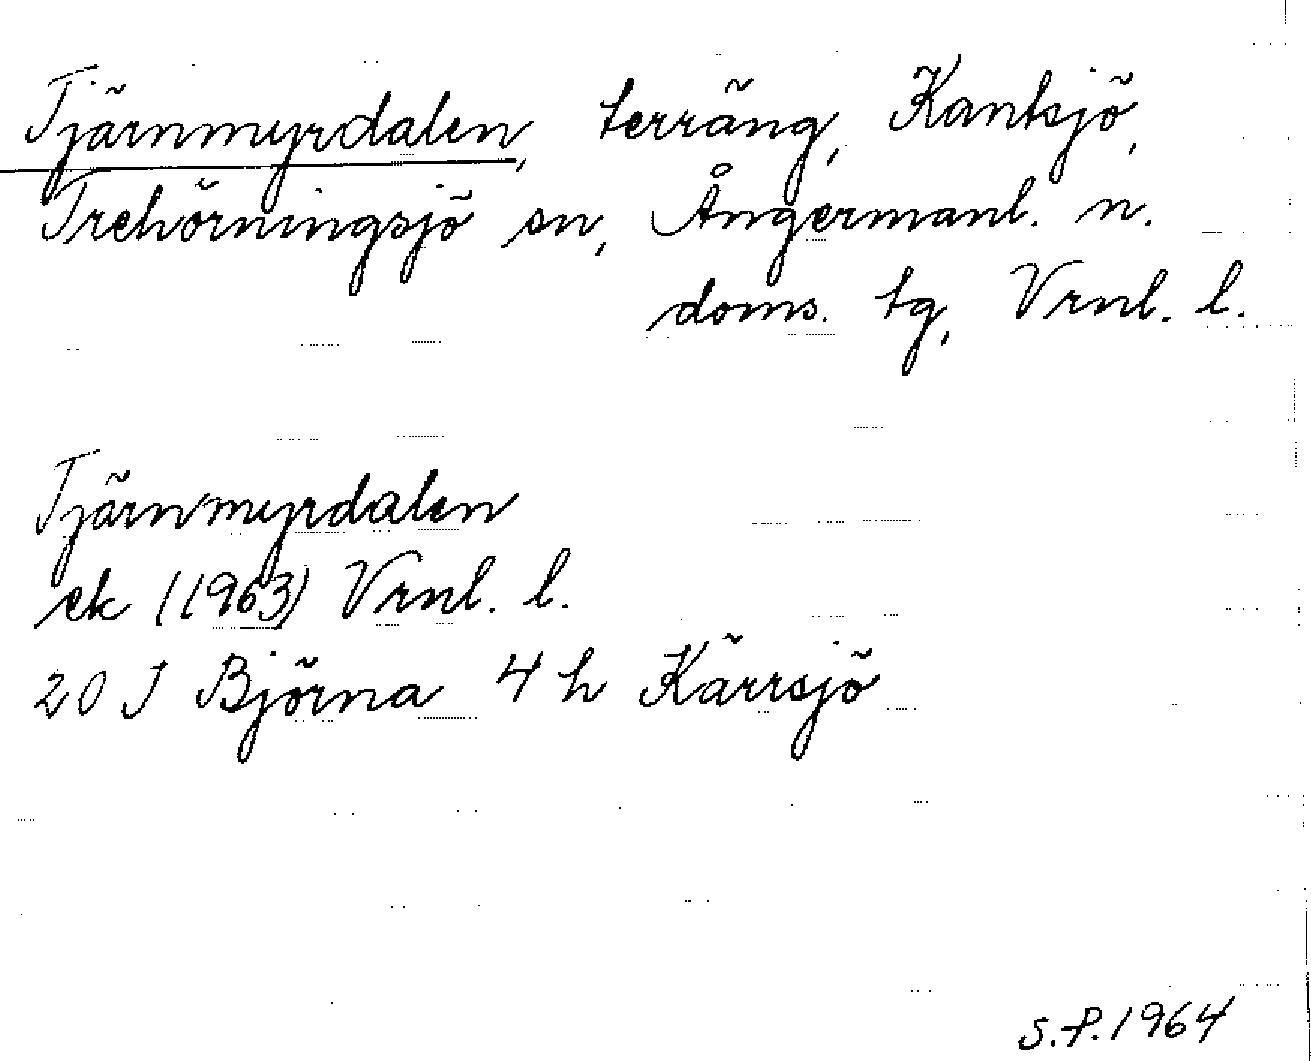 Tjärnmyrdalen, terräng, Kantsjö,
Trehörningsjö sn, Ångermanl. n.
doms. tg, Vrnl. l.
Tjärnmyrdalen
ek (1963) Vrnl. l.
20 J Björna 4 h Kärrsjö
S.F. 1964